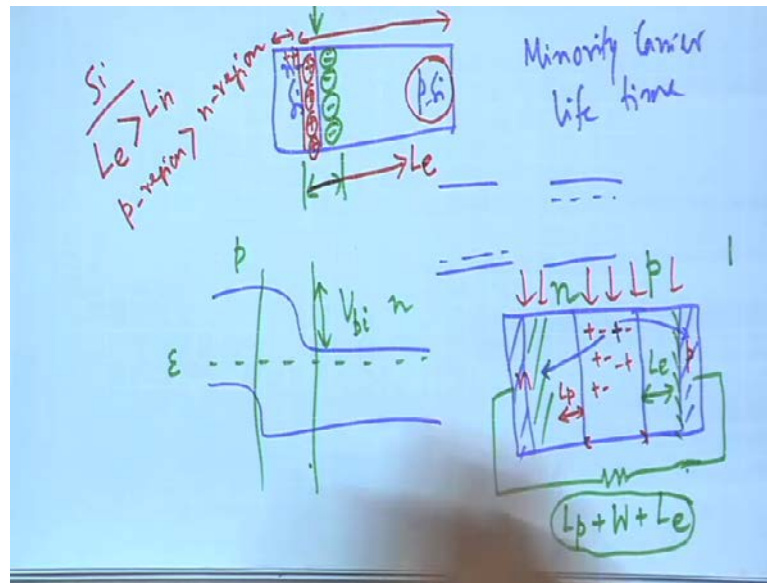 Si
Le > Ln
p-region > n-region
n+
Si
p-Si
Minority Carrier
life time
Le
p
Vbi n
E
n p
n
+- +-
+- -+
+-
Lp
Le
p
Lp + W + Le